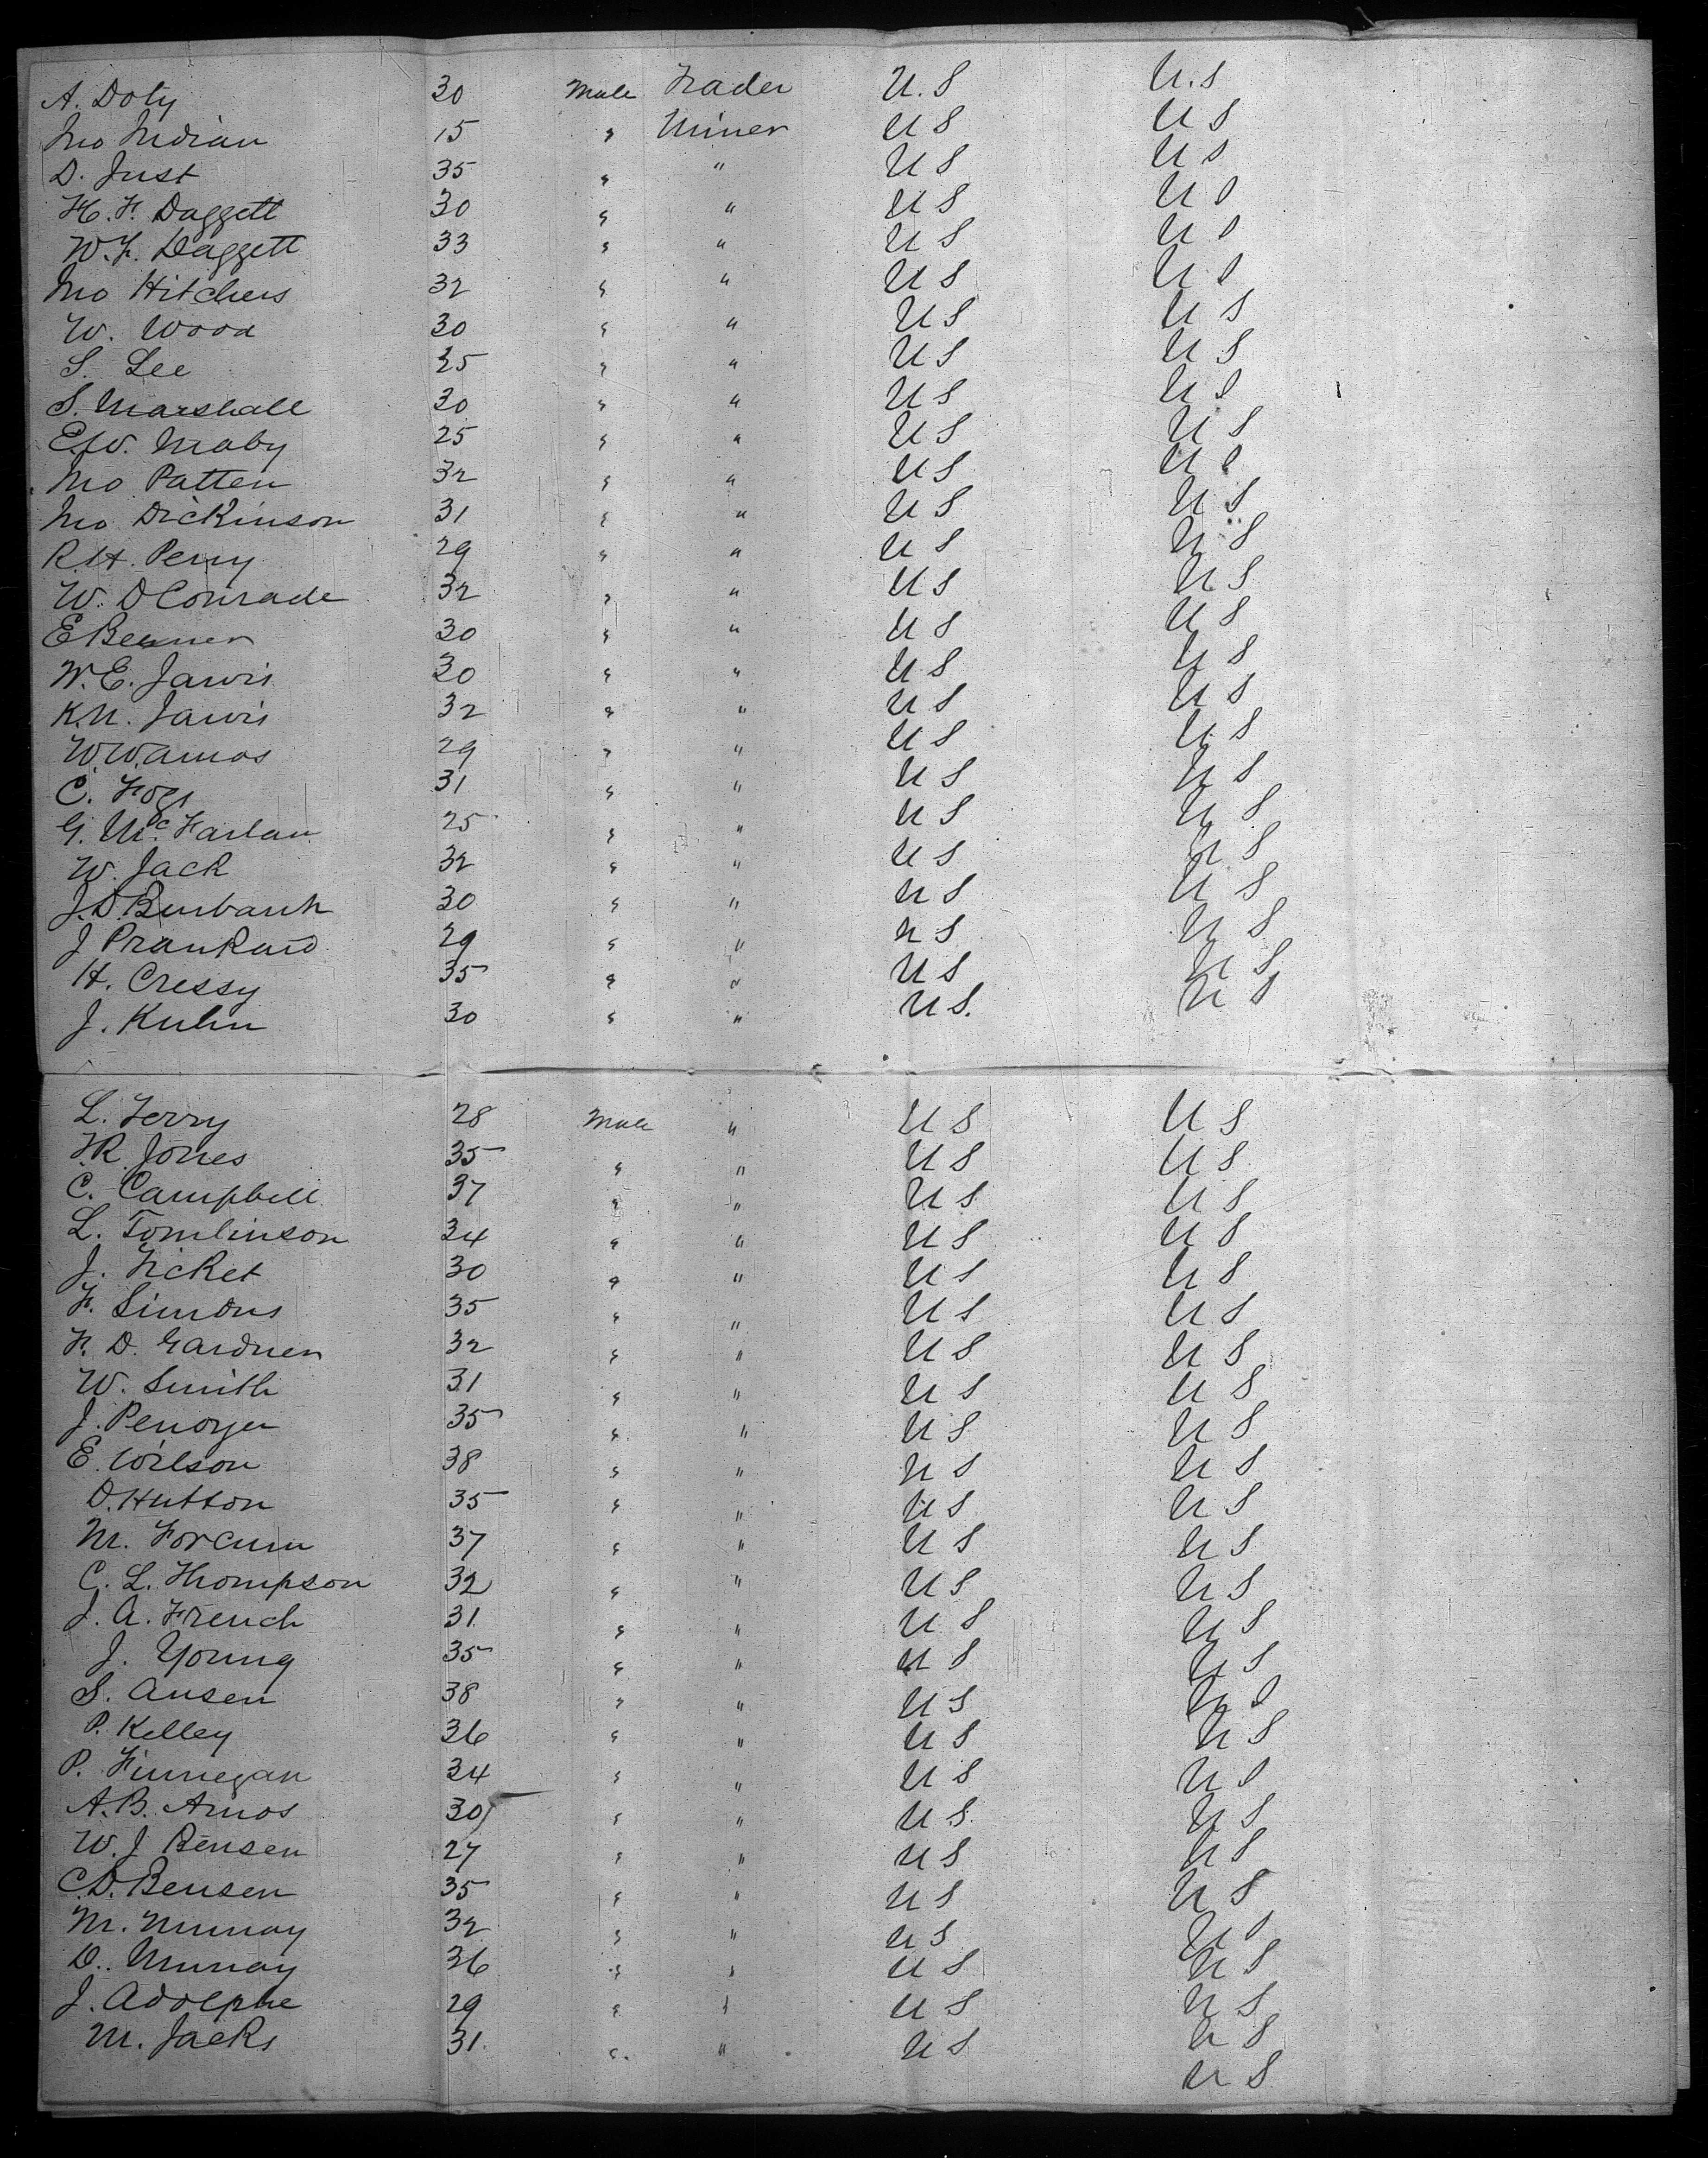 A. Doty 30 Male Trader U.S U.S
Jno Indian 15 " Miner U S U S
D. Just 35 " " U S U S
H. F. Daggett 30 " " U S U S
W. F. Daggett 33 " " U S U S
Jno Hitchens 32 " " U S U S
W. Wood 30 " " U S U S
S. Lee 25 " " U S U S
S. Marshall 30 " " U S U S
E.W. Maby 25 " " U S U S
Jno Patten 32 " " U S U S
Jno Dickinson 31 " " U S U S
R.H. Perry 29 " " U S U S
W. D Conrade 32 " " U S U S
E 30 " " U S U S
W. E. Jarvis 30 " " U S U S
K.N. Jarvis 32 " " U S U S
W.W. Amos 29 " " U S U S
C. 31 " " U S U S
G. McFarlan 25 " " U S U S
W. Jack 32 " " U S U S
J.D. Burbank 30 " " U S U S
J Prankard 29 " " U S U S
H. Cressy 35 " " U S U S
J. Kuhn 30 " " U S. U S
L. Ferry 28 Male " U S U S
F.R. Jones 35 " " U S U S
C. Campbell 37 " " U S U S
L. Tomlinson 34 " " U S U S
J. Ticket 30 " " U S U S
F. Simons 35 " " U S U S
F. D. Gardner 32 " " U S U S
W. Smith 31 " " U S U S
J. Penoyer 35 " " U S U S
E. Wilson 38 " " U S U S
D. Hutton 35 " " U S U S
M. Forcum 37 " " U S U S
C. L. Thompson 32 " " U S U S
J. A. French 31 " " U S U S
J. Young 35 " " U S U S
S. Ansen 38 " " U S U S
P. Kelley 36 " " U S U S
P. Finnegan 34 " " U S U S
A. B. Amos 30 " " U S U S
W. J Bensen 27 " " U S U S
C.D. Bensen 35 " " U S U S
M. Murray 32 " " U S U S
D. Murray 36 " " U S U S
J. Adolphe 29 " " U S U S
M. Jacks 31 " " U S U S
U S